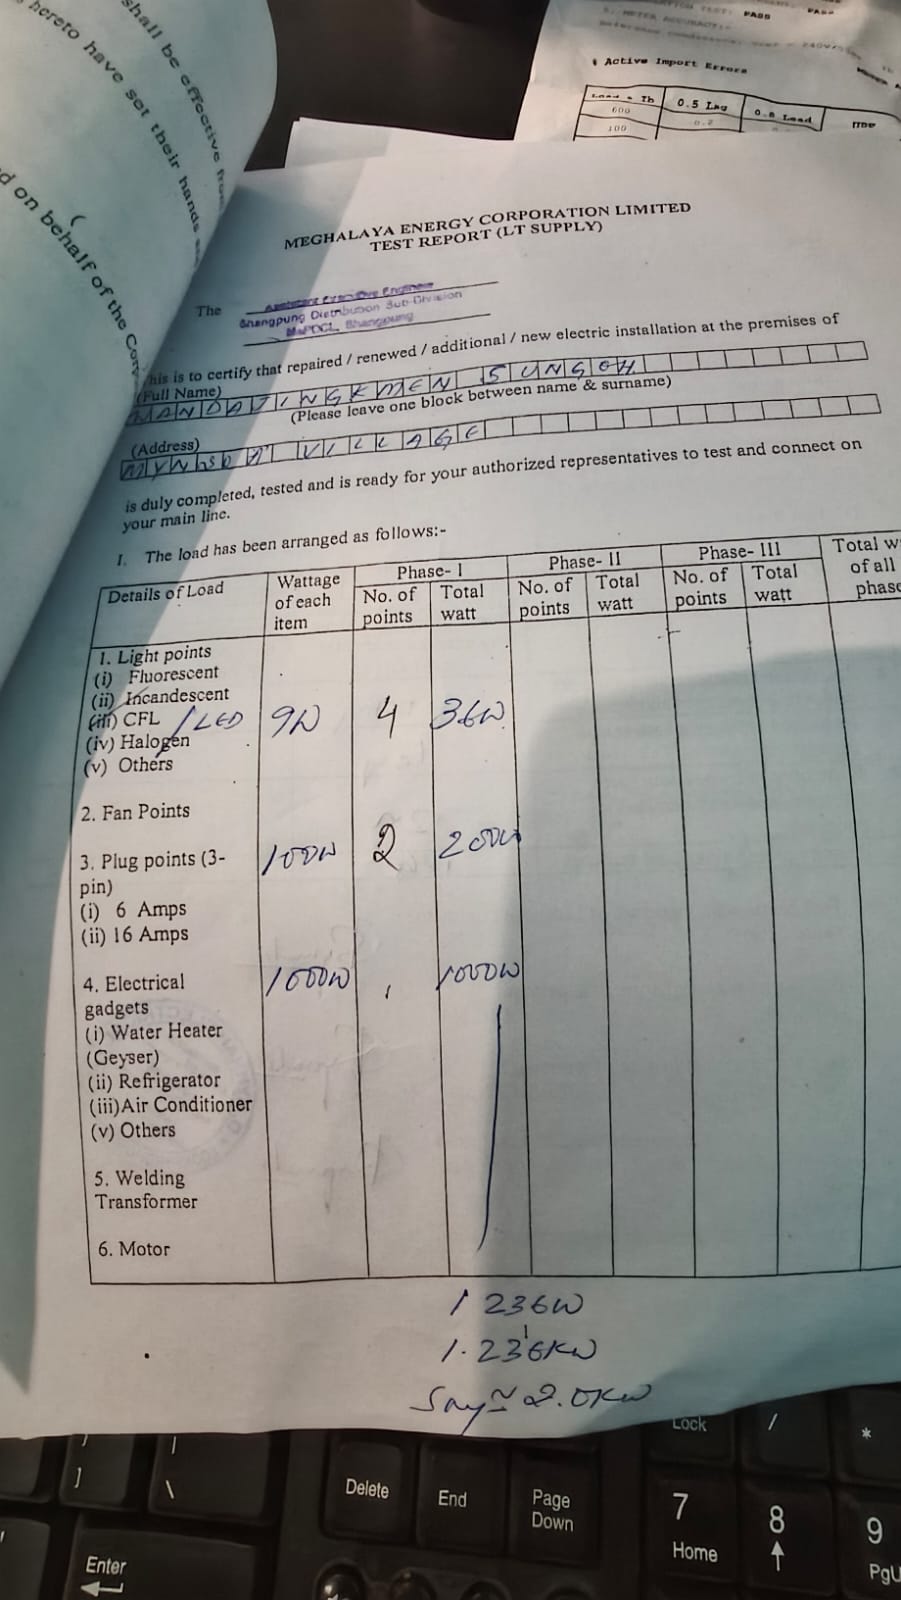 shall be effective from
hereto have set their hands
d on behalf of the Cor
PASS
Active Import Errors
0.5 Lag
0.8 Lead
600
100
0.2
MEGHALAYA ENERGY CORPORATION LIMITED
TEST REPORT (LT SUPPLY)
The
Assistant Executive Engineer
Shangpung Distribution Sub-Division
MePDCL, Shangpung
This is to certify that repaired / renewed / additional / new electric installation at the premises of
(Full Name)
SUNGOH
(Please leave one block between name & surname)
(Address)
VILLAGE
is duly completed, tested and is ready for your authorized representatives to test and connect on
your main line.
I. The load has been arranged as follows:-
Details of Load Wattage of each item Phase- I Phase- II Phase- III Total w
of all
phase
No. of points Total watt No. of points Total watt No. of points Total watt
1. Light points
(i) Fluorescent
(ii) Incandescent
(iii) CFL / LED 9W 4 36W
(iv) Halogen
(v) Others
2. Fan Points
3. Plug points (3- 100W 2 200W
pin)
(i) 6 Amps
(ii) 16 Amps
4. Electrical 1000W 1 1000W
gadgets
(i) Water Heater
(Geyser)
(ii) Refrigerator
(iii)Air Conditioner
(v) Others
5. Welding
Transformer
6. Motor
1236W
1.236KW
Say ≃ 2.0KW
Lock / *
] \ Delete End Page Down 7 Home 8 9 PgU
Enter